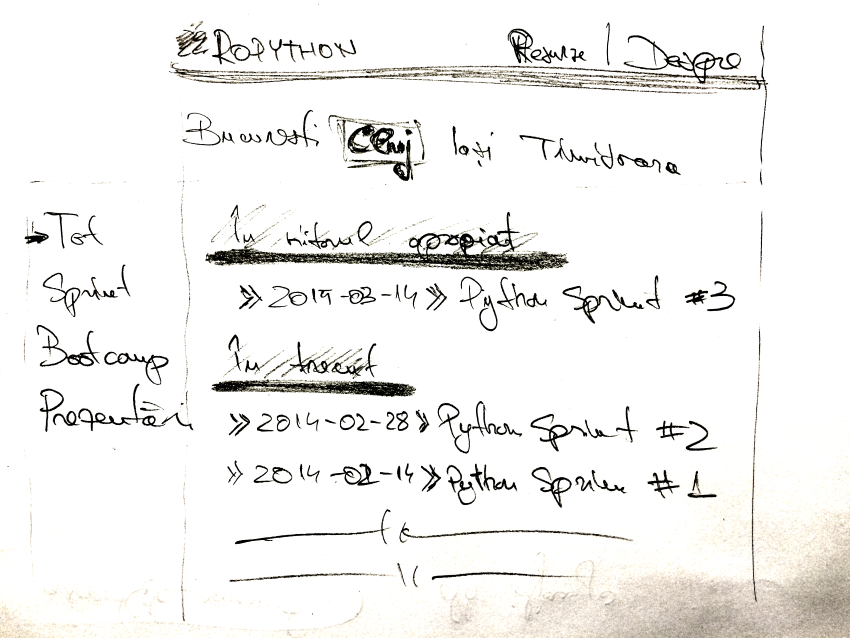 ROPYTHON Resurse | Despre
București Cluj Iași Timișoara
Tot
Sprint
Bootcamp
Prezentări
În viitorul apropiat
» 2014-03-14 » Python Sprint #3
În trecut
» 2014-02-28 » Python Sprint #2
» 2014-02-14 » Python Sprint #1